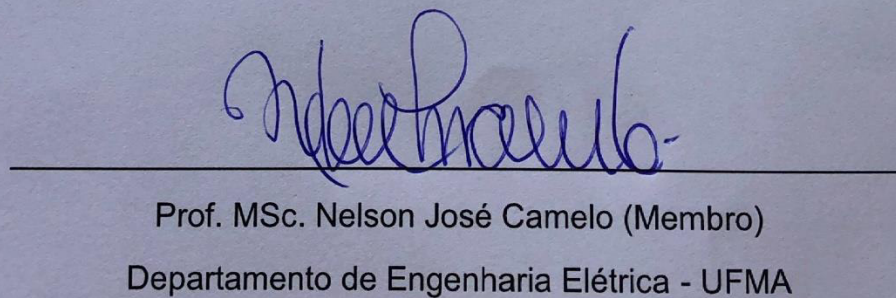 Prof. MSc. Nelson José Camelo (Membro)
Departamento de Engenharia Elétrica - UFMA